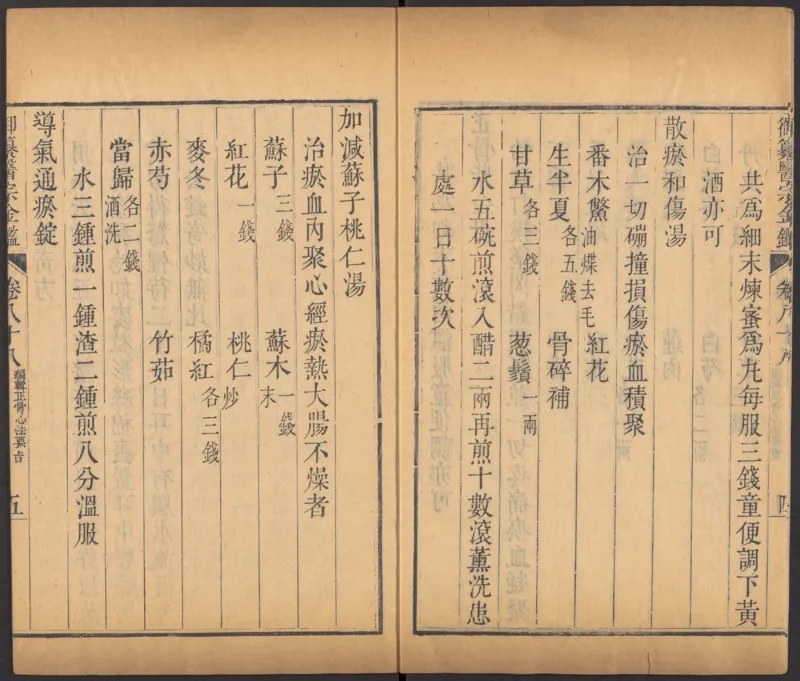 共爲細末煉蜜爲丸每服三錢童便調下黃
酒亦可
散瘀和傷湯
治一切碰撞損傷瘀血積聚
番木鱉油煠去毛 紅花
生半夏各五錢 骨碎補
甘草各三錢 葱鬚一兩
水五碗煎滾入醋二兩再煎十數滾薰洗患
處一日十數次
加減蘇子桃仁湯
治瘀血內聚心經瘀熱大腸不燥者
蘇子三錢 蘇木末一錢
紅花一錢 桃仁炒
麥冬 橘紅各三錢
赤芍 竹茹
當歸各二錢酒洗
水三鍾煎一鍾渣二鍾煎八分溫服
導氣通瘀錠
御纂醫宗金鑑 卷八十八 編輯正骨心法要旨 五